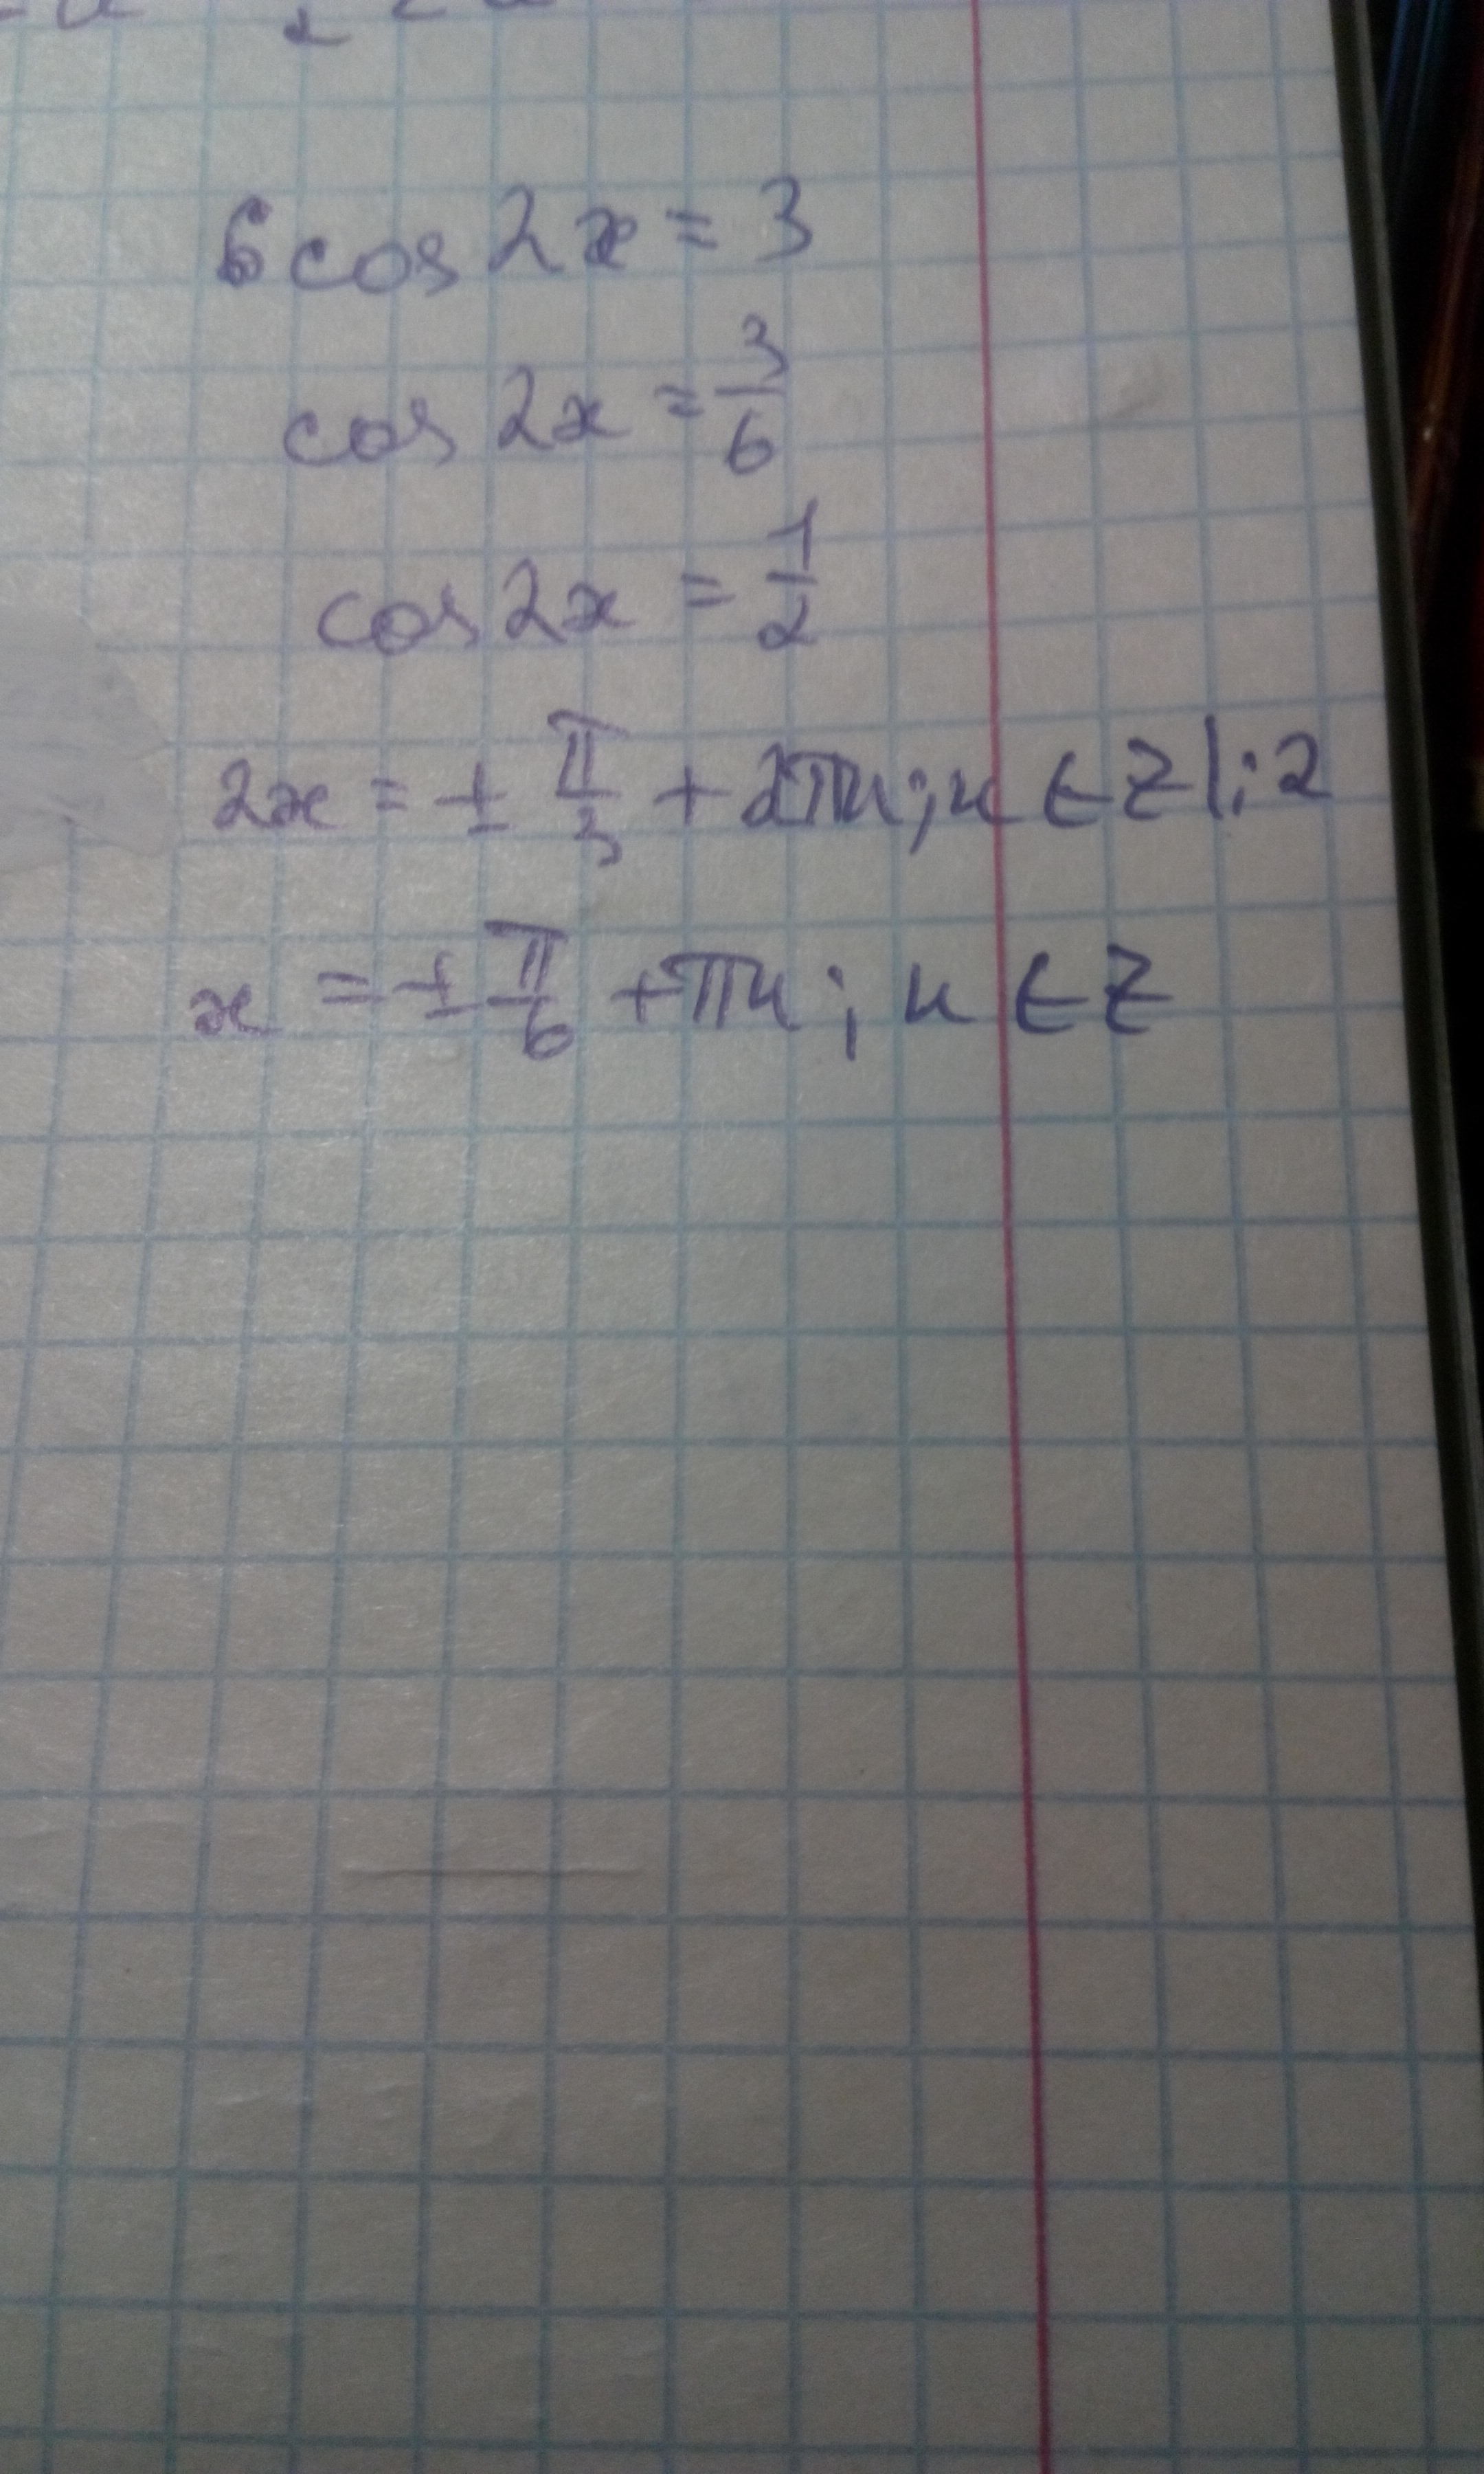 6 cos 2x = 3
cos 2x = 3/6
cos 2x = 1/2
2x = ± π/3 + 2πn; n ∈ Z |:2
x = ± π/6 + πn; n ∈ Z